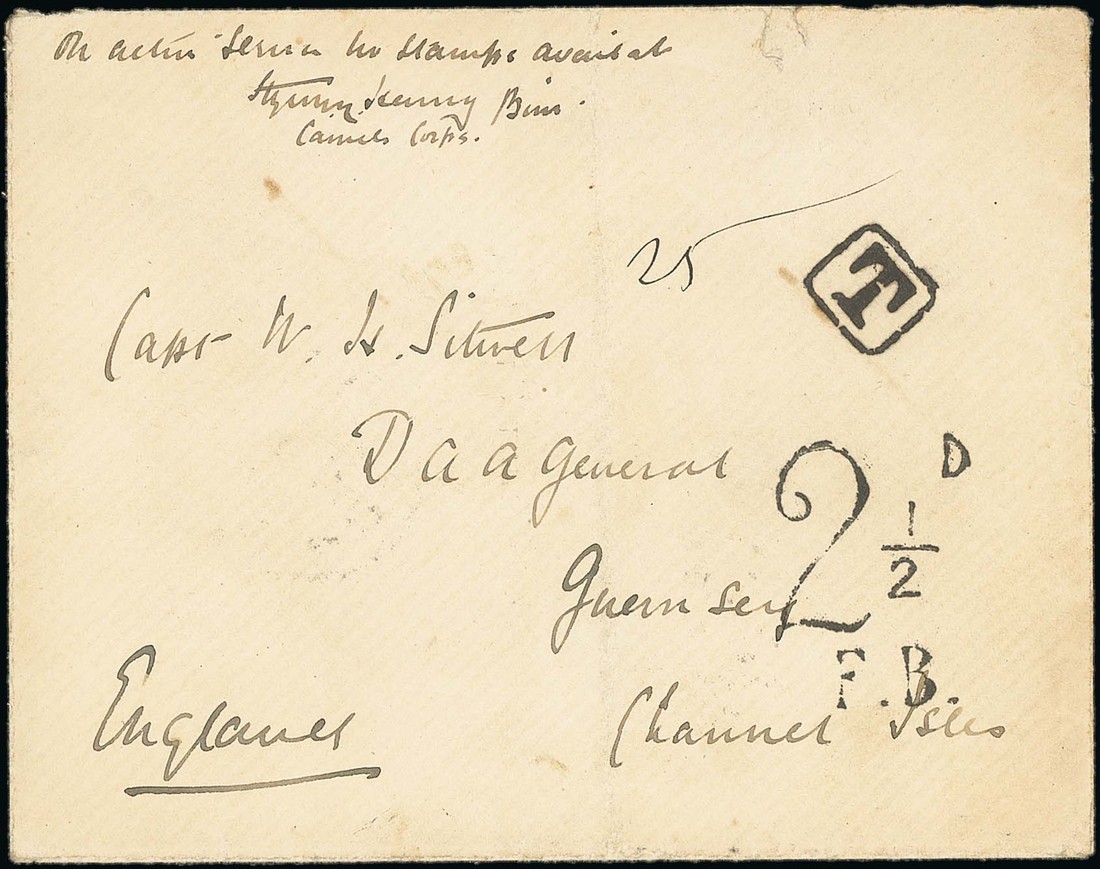 On active service no stamps availabl
Kenny
Camel Corps.
25
T
Capt W. H. Sitwell
D A A General
2 1/2 D
Guernsey
F.B.
England
Channel Isles